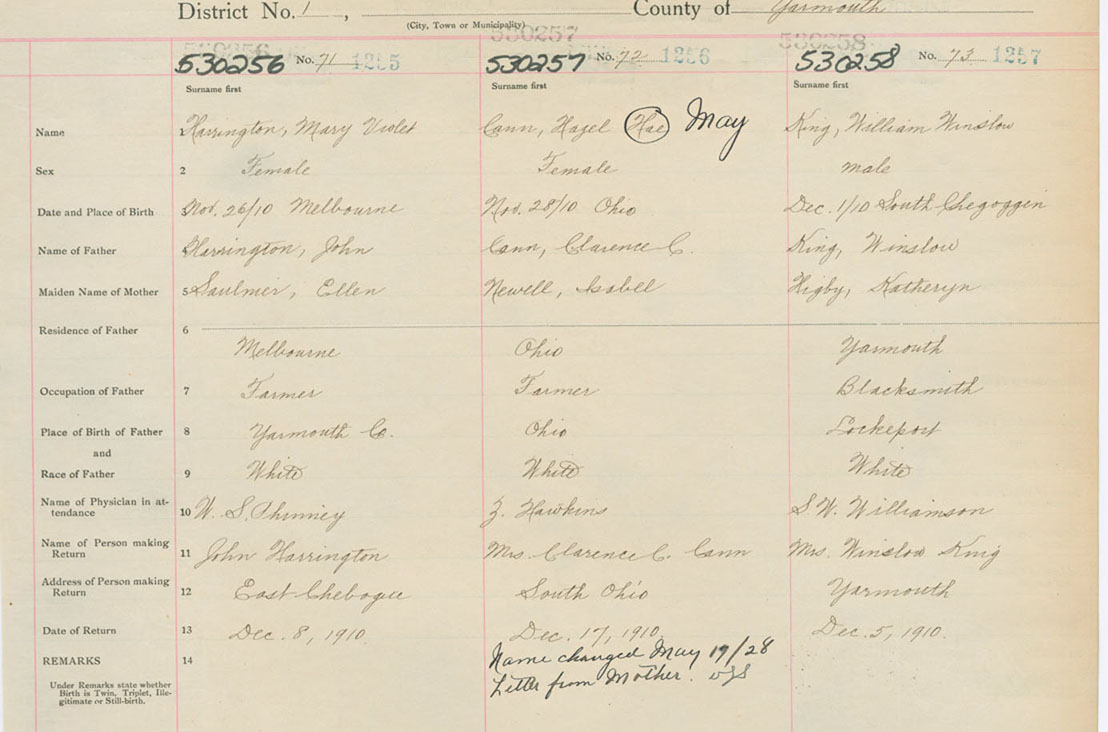 District No. 1, County of Yarmouth
(City, Town or Municipality)
530256 530257 530258
530256 No. 71 1255 530257 No. 72 1256 530258 No. 73 1257
Surname first Surname first Surname first
Name 1 Harrington, Mary Violet Cann, Hazel Hae May King, William Winslow
Sex 2 Female Female male
Date and Place of Birth 3 Nov. 26/10 Melbourne Nov. 28/10 Ohio Dec. 1/10 South Chegoggin
Name of Father 4 Harrington, John Cann, Clarence C. King, Winslow
Maiden Name of Mother 5 Saulnier, Ellen Newell, Isabell Higby, Katheryn
Residence of Father 6
Melbourne Ohio Yarmouth
Occupation of Father 7 Farmer Farmer Blacksmith
Place of Birth of Father 8 Yarmouth Co. Ohio Lockeport
and
Race of Father 9 White White White
Name of Physician in at-
tendance 10 W. S. Phinney Z. Hawkins S. W. Williamson
Name of Person making
Return 11 John Harrington Mrs. Clarence C. Cann Mrs. Winslow King
Address of Person making
Return 12 East Chebogue South Ohio Yarmouth
Date of Return 13 Dec. 8, 1910. Dec. 17, 1910. Dec. 5, 1910.
REMARKS 14 Name changed May 19/28
Letter from Mother.
Under Remarks state whether
Birth is Twin, Triplet, Ille-
gitimate or Still-birth.